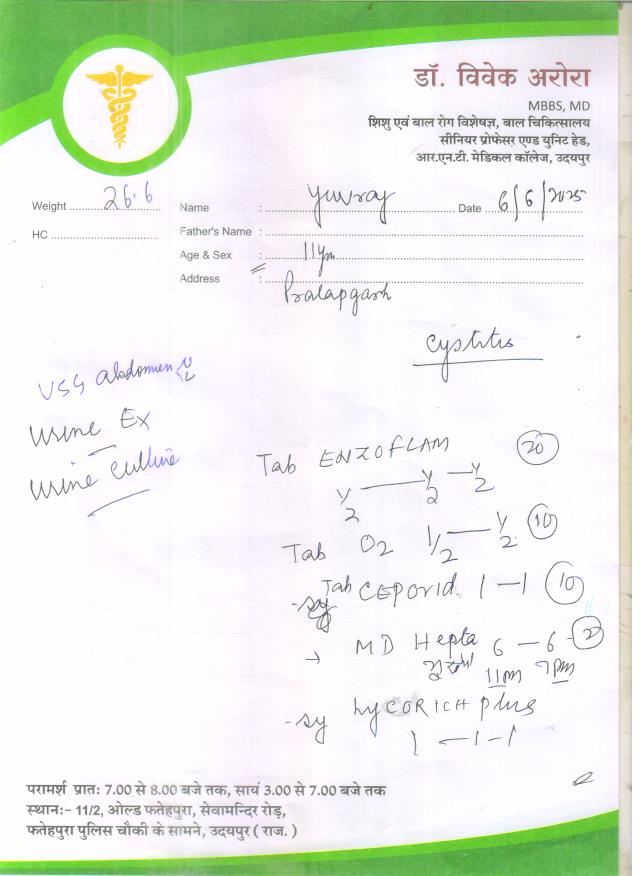 डॉ. विवेक अरोरा
MBBS, MD
शिशु एवं बाल रोग विशेषज्ञ, बाल चिकित्सालय
सीनियर प्रोफेसर एण्ड युनिट हेड,
आर.एन.टी. मेडिकल कॉलेज, उदयपुर
Weight 26.6
Name : Yuvraj Date 6/6/2025
HC
Father's Name :
Age & Sex : 11 ym
Address : Pratapgarh
Cystitis
USG abdomen
Urine Ex
Urine Culture
Tab ENZOFLAM 20
1/2 — 1/2 — 1/2
Tab O2 1/2 — 1/2 10
Tab CEPORID 1 — 1 10
MD Hepta 6 — 6 2
11 Am 7 Pm
Sy LYCORICH plus
1 — 1 — 1
परामर्श प्रात: 7.00 से 8.00 बजे तक, सायं 3.00 से 7.00 बजे तक
स्थान:- 11/2, ओल्ड फतेहपुरा, सेवामन्दिर रोड़,
फतेहपुरा पुलिस चौकी के सामने, उदयपुर ( राज. )